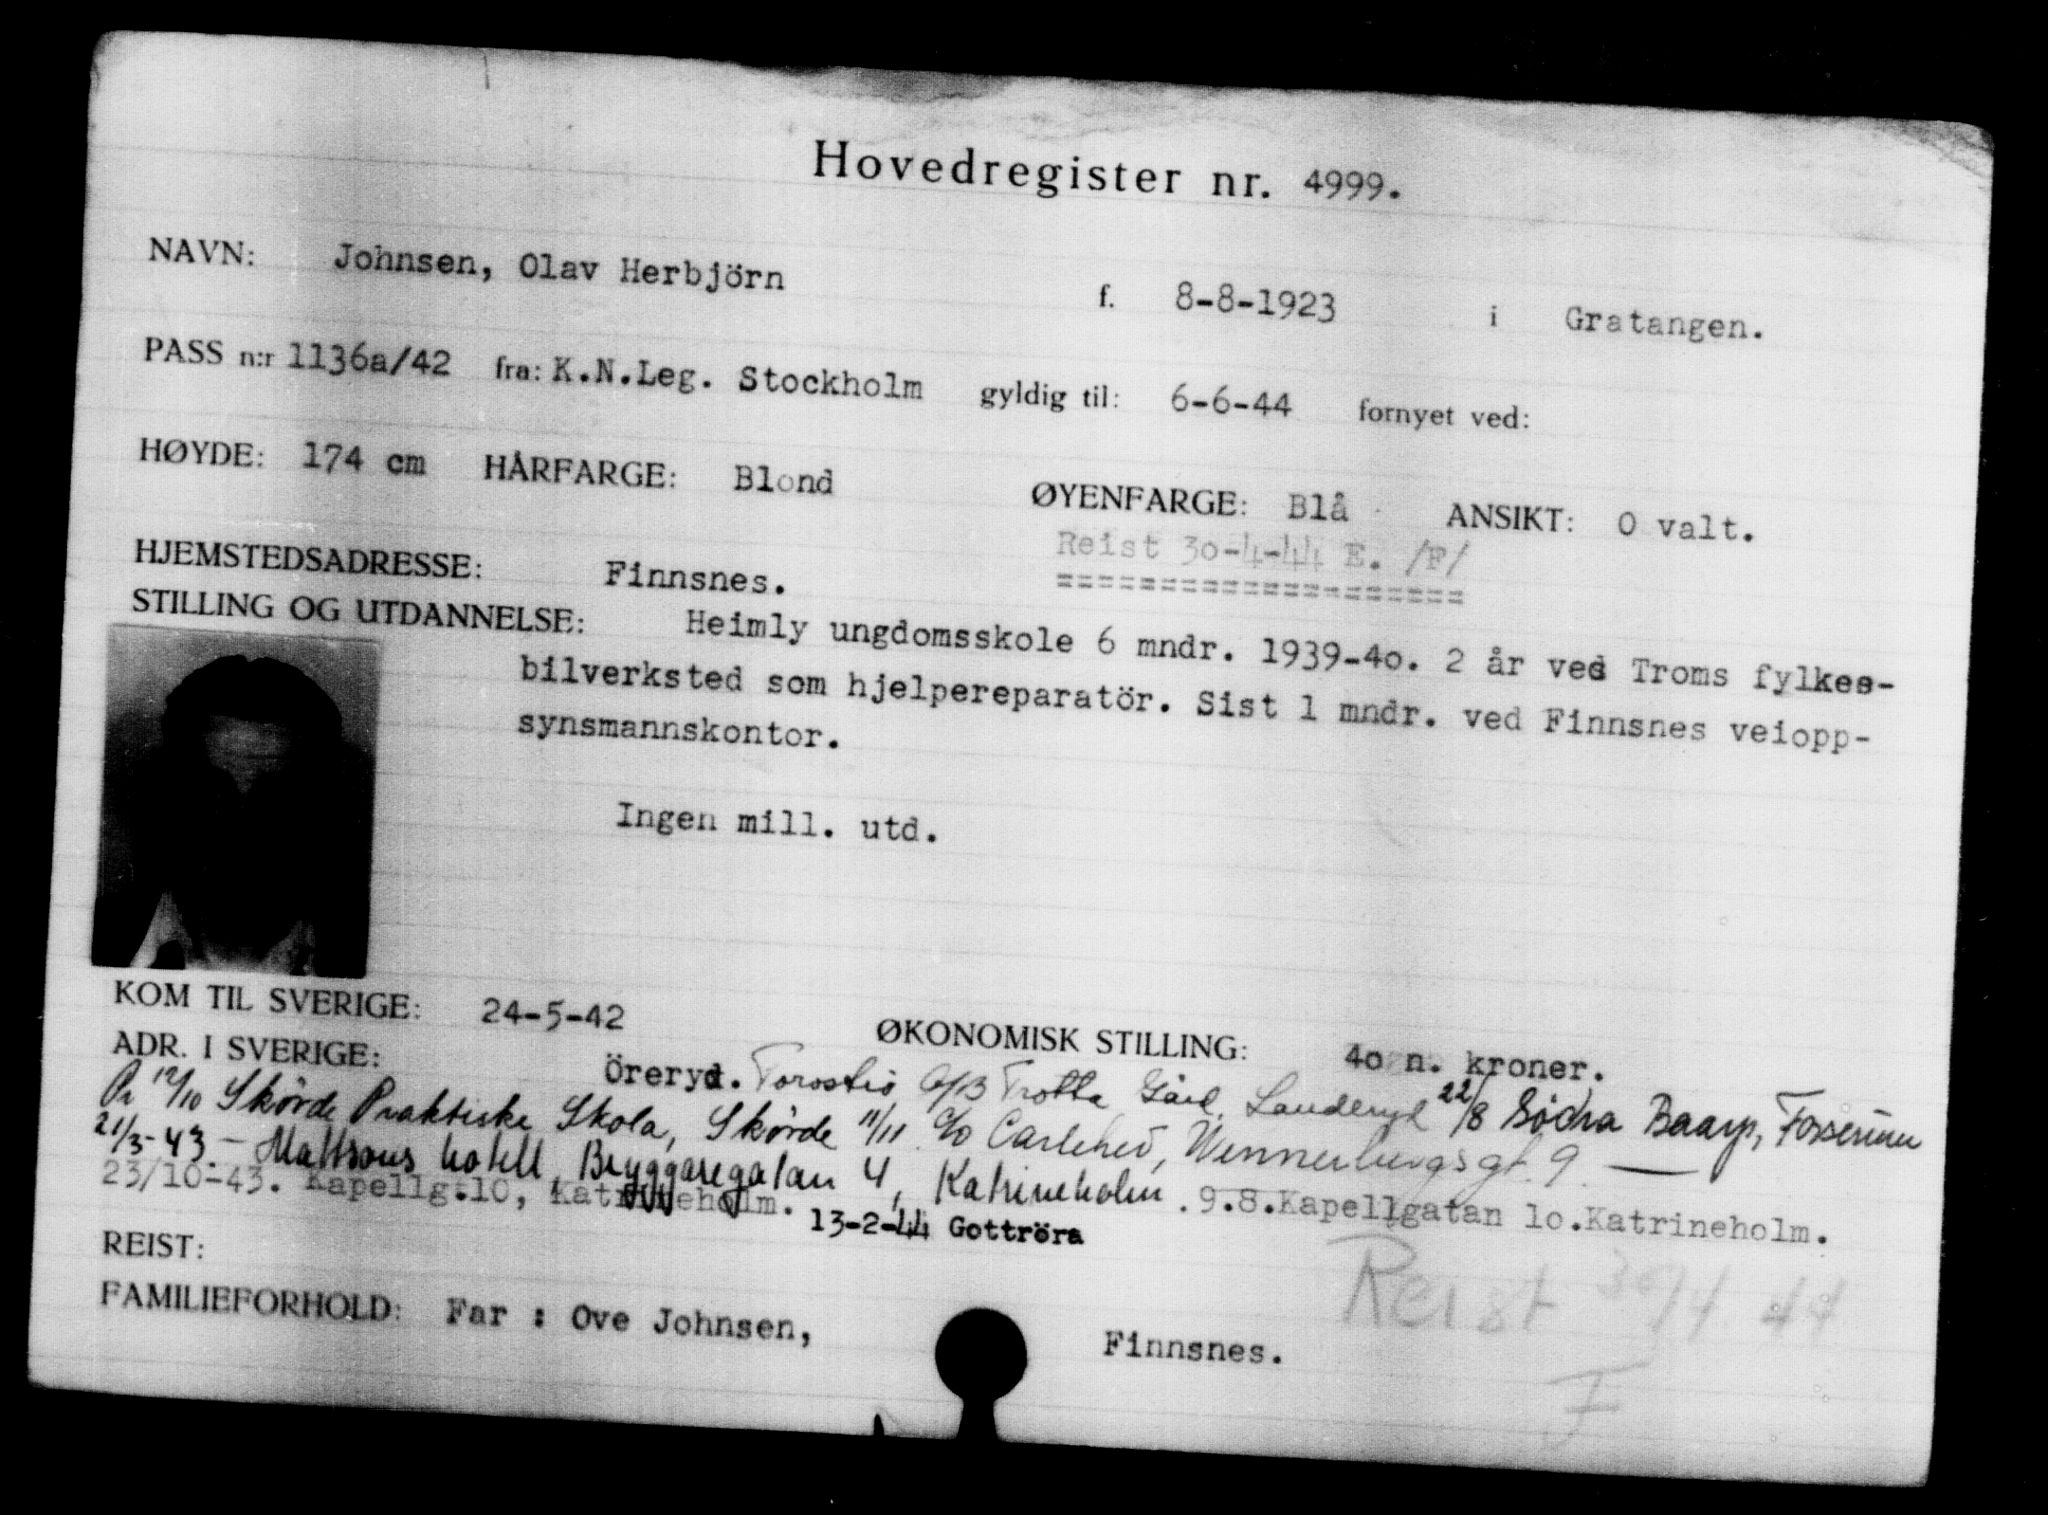 Hovedregister nr. 4999.
NAVN: Johnsen, Olav Herbjörn f. 8-8-1923 i Gratangen.
PASS n:r 1136a/42 fra: K.N.Leg. Stockholm gyldig til: 6-6-44 fornyet ved:
HØYDE: 174 cm HÅRFARGE: Blond ØYENFARGE: Blå ANSIKT: O valt.
Reist 30-4-44 E. /F/
HJEMSTEDSADRESSE: Finnsnes.
====================
STILLING OG UTDANNELSE: Heimly ungdomsskole 6 mndr. 1939-40. 2 år ved Troms fylkes-
bilverksted som hjelpereparatör. Sist 1 mndr. ved Finnsnes veiopp-
synsmannskontor.
Ingen mill. utd.
KOM TIL SVERIGE: 24-5-42 ØKONOMISK STILLING: 40 n. kroner.
ADR. I SVERIGE: Öreryd. Trotta Gård, Landeryd 22/8 Södra Baarp, Forserum
Pr 12/10 Skövde Praktiske Skola, Skövde 11/11 c/o Carlehed, Wennerbergsgt. 9 —
21/3-43 - Mattsons hotell, Bryggaregatan 4, Katrineholm. 9.8.Kapellgatan 10.Katrineholm.
23/10-43. Kapellg.10, Katrineholm. 13-2-44 Gottröra
REIST: Reist 30/4 44
FAMILIEFORHOLD: Far : Ove Johnsen, Finnsnes.
F